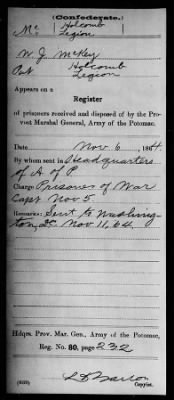 (Confederate.)
Mc Holcomb
Legion
W. J. McKey
Pvt Holcomb
Legion
Appears on a
Register
of prisoners received and disposed of by the Pro-
vost Marshal General, Army of the Potomac.
Date Nov. 6, 1864
By whom sent in Headquarters
of A of P
Charge Prisoner of War
Capt Nov 5
Remarks: Sent to Washing-
ton, DC Nov 11, 64.
Hdqrs. Prov. Mar. Gen., Army of the Potomac,
Reg. No. 80, page 232
Copyist.